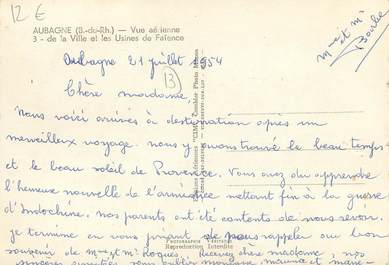 12 €
AUBAGNE (B.-du-Rh.) — Vue aérienne
3 - de la Ville et les Usines de Faïence
Aubagne 21 juillet 1954
13
Chère madame,
Nous voici arrivés à destination après un
merveilleux voyage. nous y avons trouvé le beau temps
et le beau soleil de Provence. Vous avez du apprendre
l'heureuse nouvelle de l'armistice mettant fin à la guerre
d'Indochine. nos parents ont été contents de nous revoir.
je termine en vous priant de nous rappeler au bon
souvenir de
Recevez chère madame, nos
sincères
m<sup>me</sup> et m<sup>r</sup>
PHOTOGRAPHIE
Reproduction Interdite